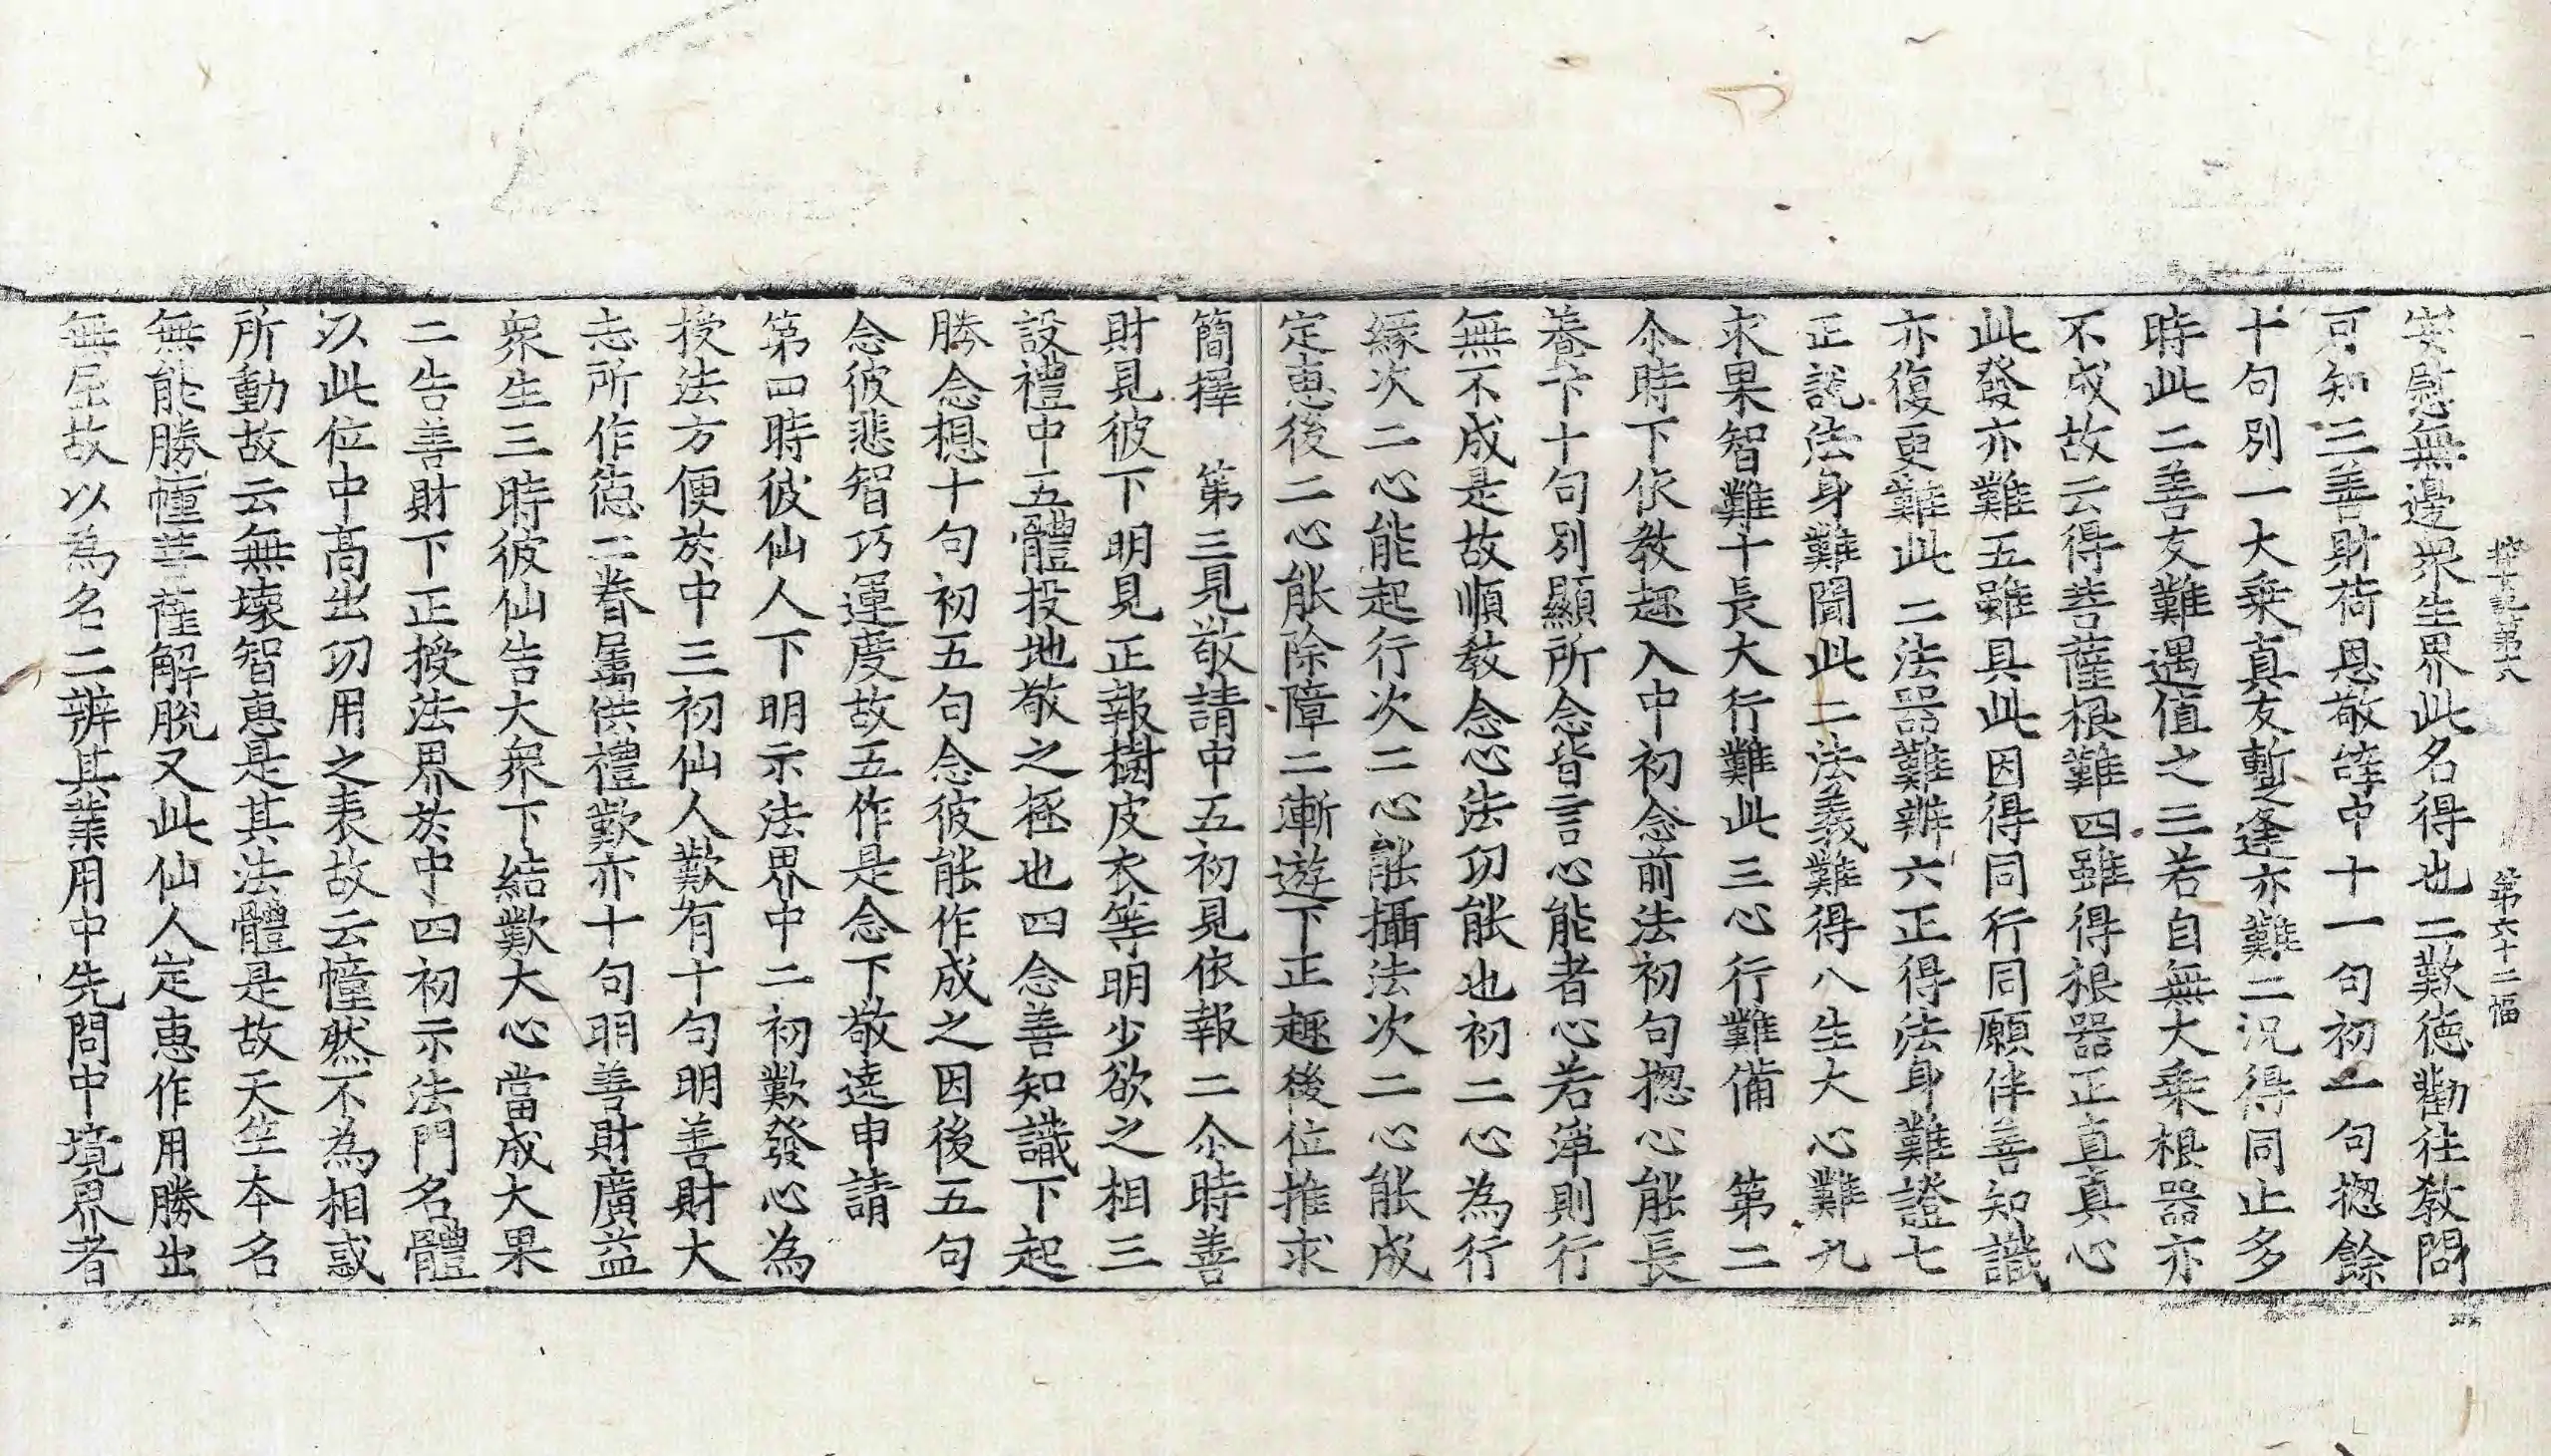 探玄記第十八　第六十二幅
安慰無邊衆生界此名得也二歎德勸往教問
可知三善財荷恩敬等中十一句初一句揔餘
十句別一大乘真友暫逢亦難二況得同止多
時此二善友難遇值之三若自無大乘根器亦
不成故云得菩薩根難四雖得根器正直真心
此發亦難五雖具此因得同行同願伴善知識
亦復更難此二法器難辦六正得法身難證七
正說法身難聞此二法義難得八生大心難九
求果智難十長大行難此三心行難備　第二
尒時下依教趣入中初念前法初句揔心能長
養下十句別顯所念皆言心能者心若準則行
無不成是故順教念心法功能也初二心為行
緣次二心能起行次二心能攝法次二心能成
定恵後二心能除障二漸遊下正趣後位推求
簡擇　第三見敬請中五初見依報二尒時善
財見彼下明見正報樹皮衣等明少欲之相三
設禮中五體投地敬之極也四念善知識下起
勝念想十句初五句念彼能作成之因後五句
念彼悲智巧運度故五作是念下敬遶申請
第四時彼仙人下明示法界中二初歎發心為
授法方便於中三初仙人歎有十句明善財大
志所作德二眷屬供禮歎亦十句明善財廣益
衆生三時彼仙告大衆下結歎大心當成大果
二告善財下正授法界於中四初示法門名體
以此位中高出功用之表故云幢然不為相惑
所動故云無壞智恵是其法體是故天竺本名
無能勝幢菩薩解脫又此仙人定恵作用勝出
無屈故以為名二辨其業用中先問中境界者